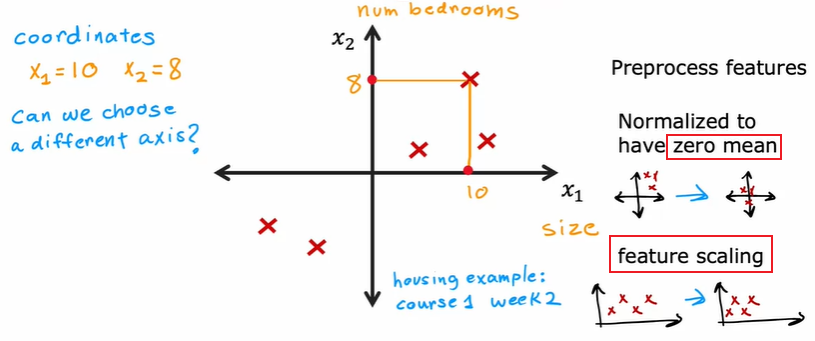 num bedrooms
coordinates
x₁=10 x₂=8
Can we choose
a different axis?
x₂
8
10
x₁
size
housing example:
course 1 week 2
Preprocess features
Normalized to
have zero mean
feature scaling